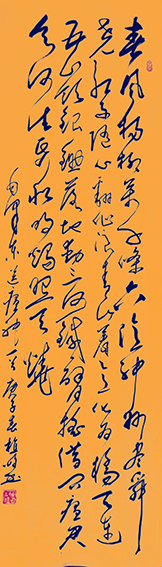 春风杨柳万千条六亿神州尽舜
尧红雨随心翻作浪青山着意化为桥天连
五岭银锄落地动三河铁臂摇借问瘟君
欲何往纸船明烛照天烧
毛泽东送瘟神庚子春